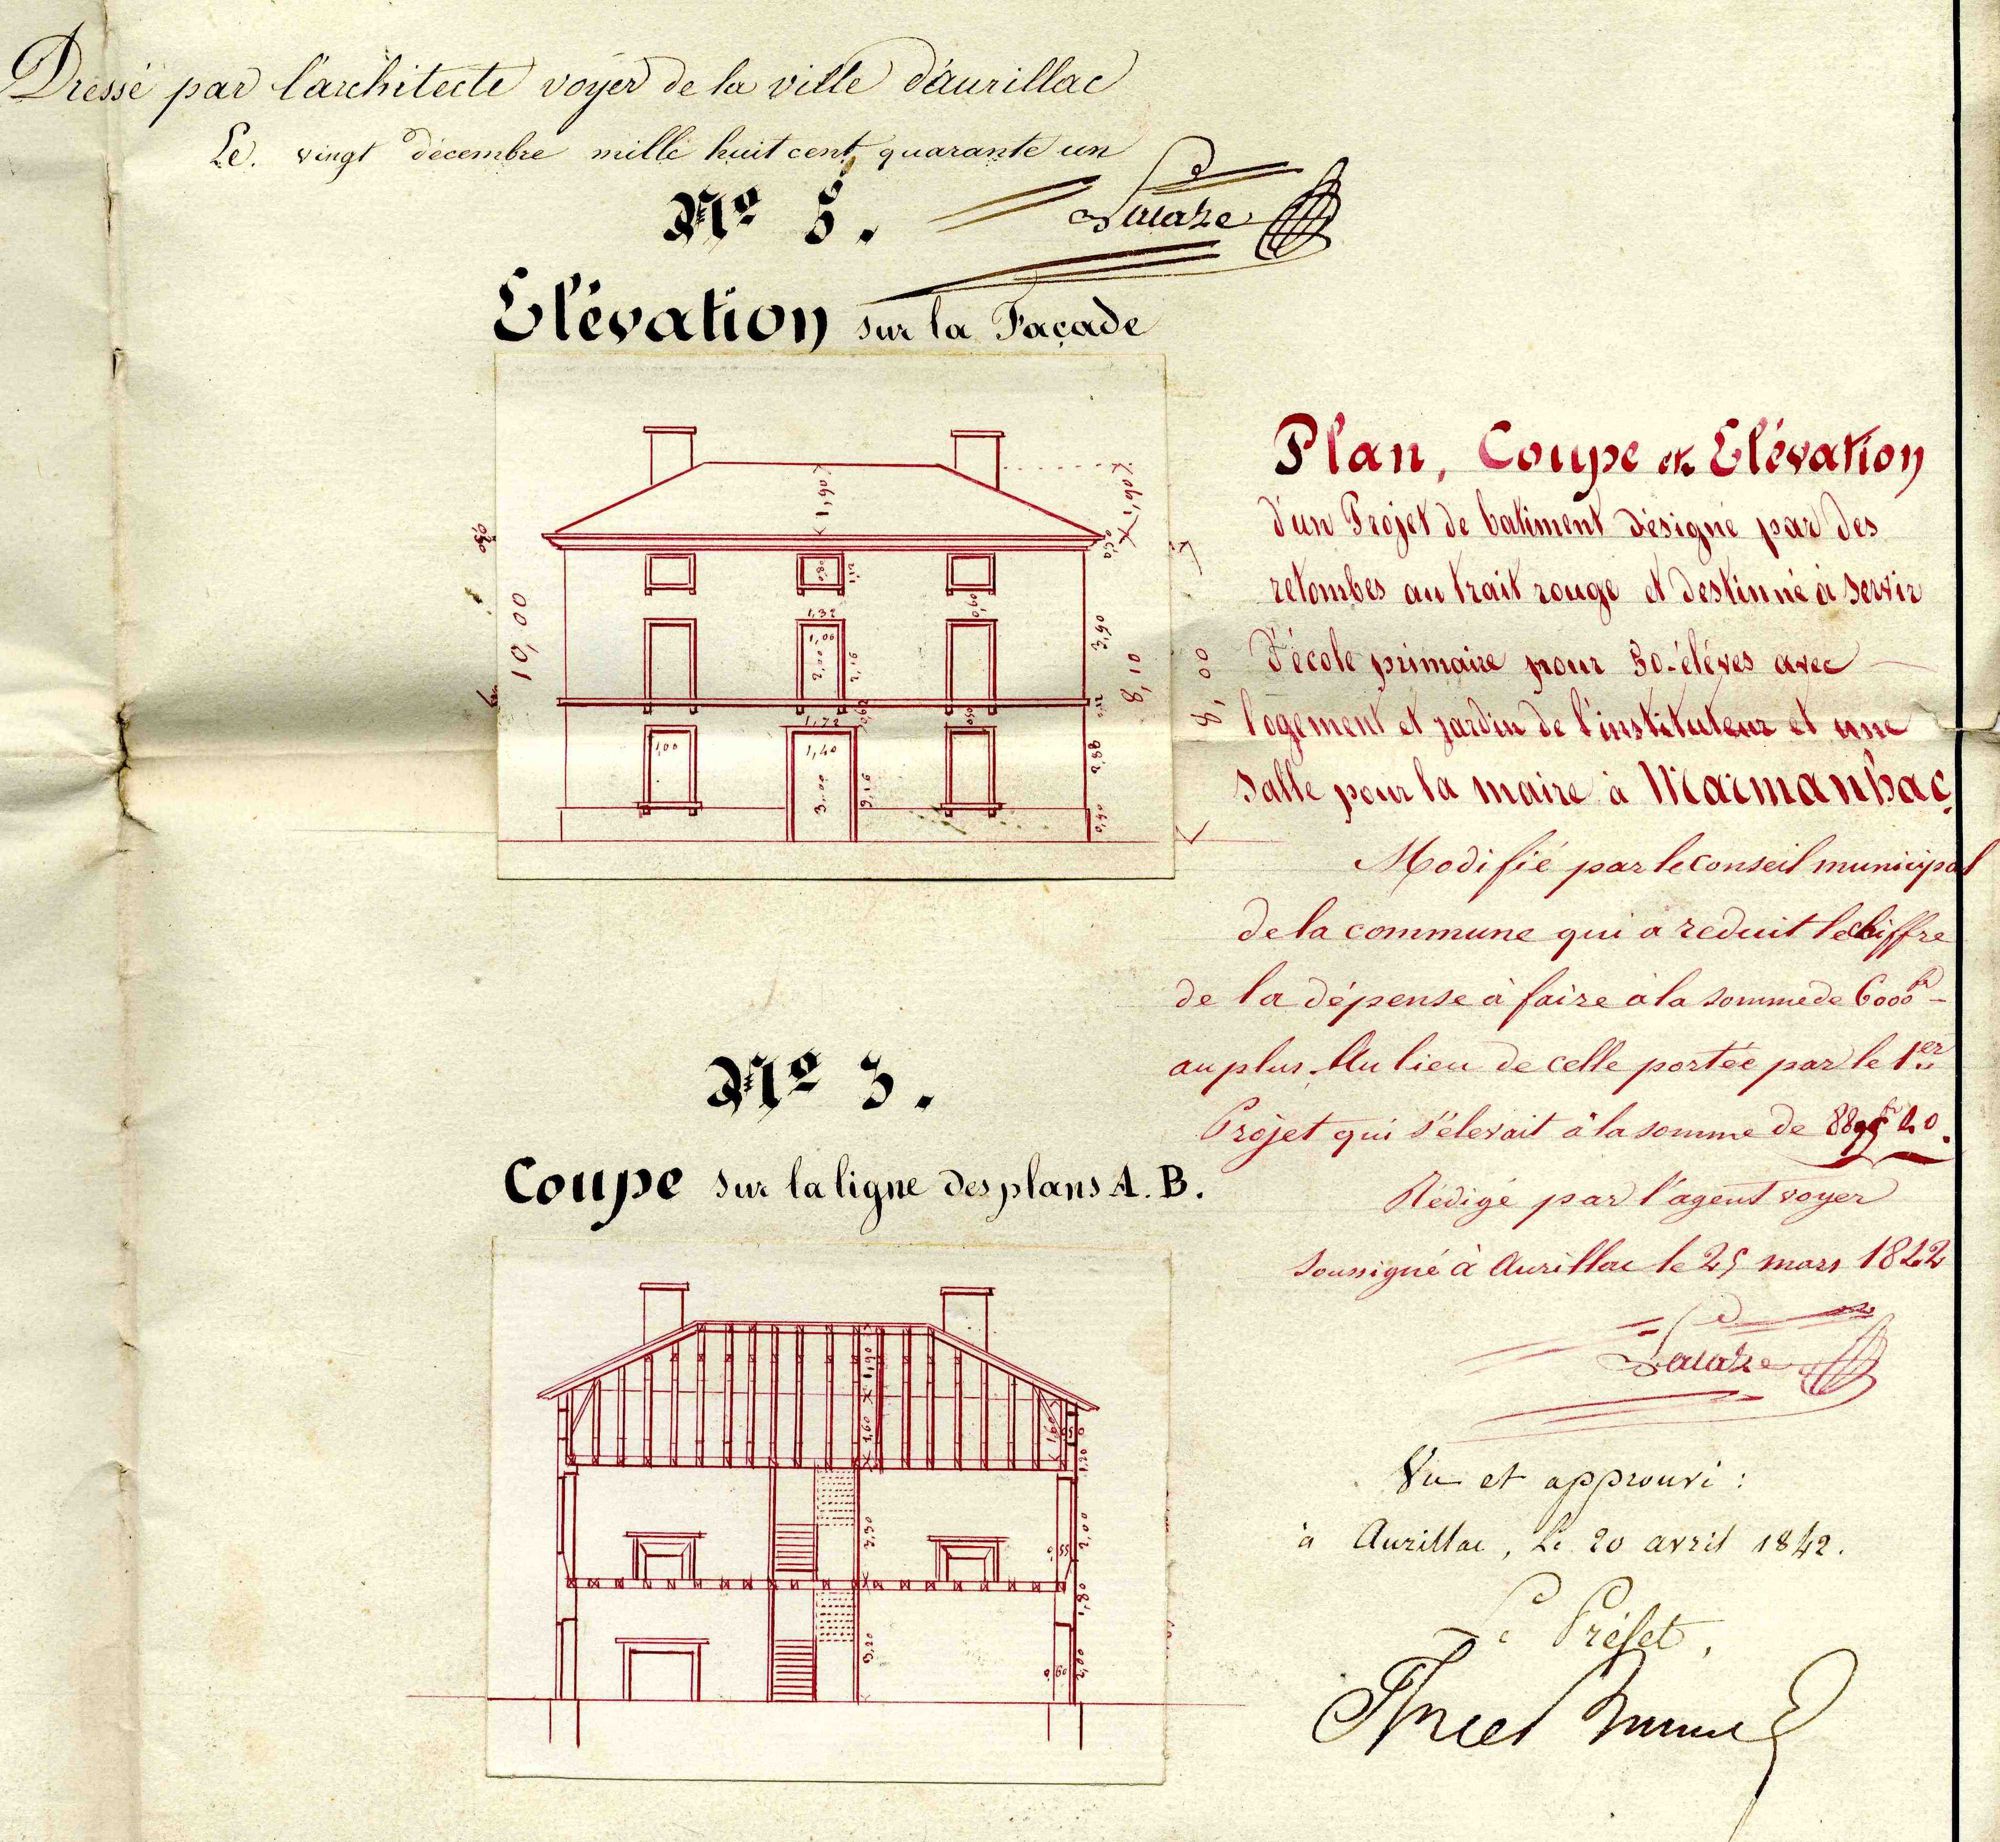 Dressé par l'architecte voyer de la ville d'aurillac
Le. vingt décembre mille huit cent quarante un
Nº 5.
Elévation sur la Façade
1,90
1,90
0,30
10,00
0,80
1,12
0,90
1,32
1,00
2,00
2,16
2,90
8,10
8,00
1,72
1,00
1,40
3,00
3,16
2,88
0,90
Plan, Coupe et Elévation
d'un Projet de batiment désigné par des
retombes au trait rouge et destinné à servir
d'école primaire pour 50 élèves avec
logement et jardin de l'instituteur et une
salle pour la maire à Marmanhac
Modifié par le conseil municipal
de la commune qui a reduit le chiffre
de la dépense à faire à la somme de 6000 fr
au plus. Au lieu de celle portée par le 1er
Projet qui s'élevait à la somme de
Rédigé par l'agent voyer
soussigné à Aurillac le 25 mars 1842
Nº 3.
Coupe sur la ligne des plans A. B.
1,90
1,60
1,60
1,20
2,90
2,00
0,55
1,80
3,20
0,60
2,00
Vu et approuvé :
à Aurillac, le 20 avril 1842.
Le Préfet,